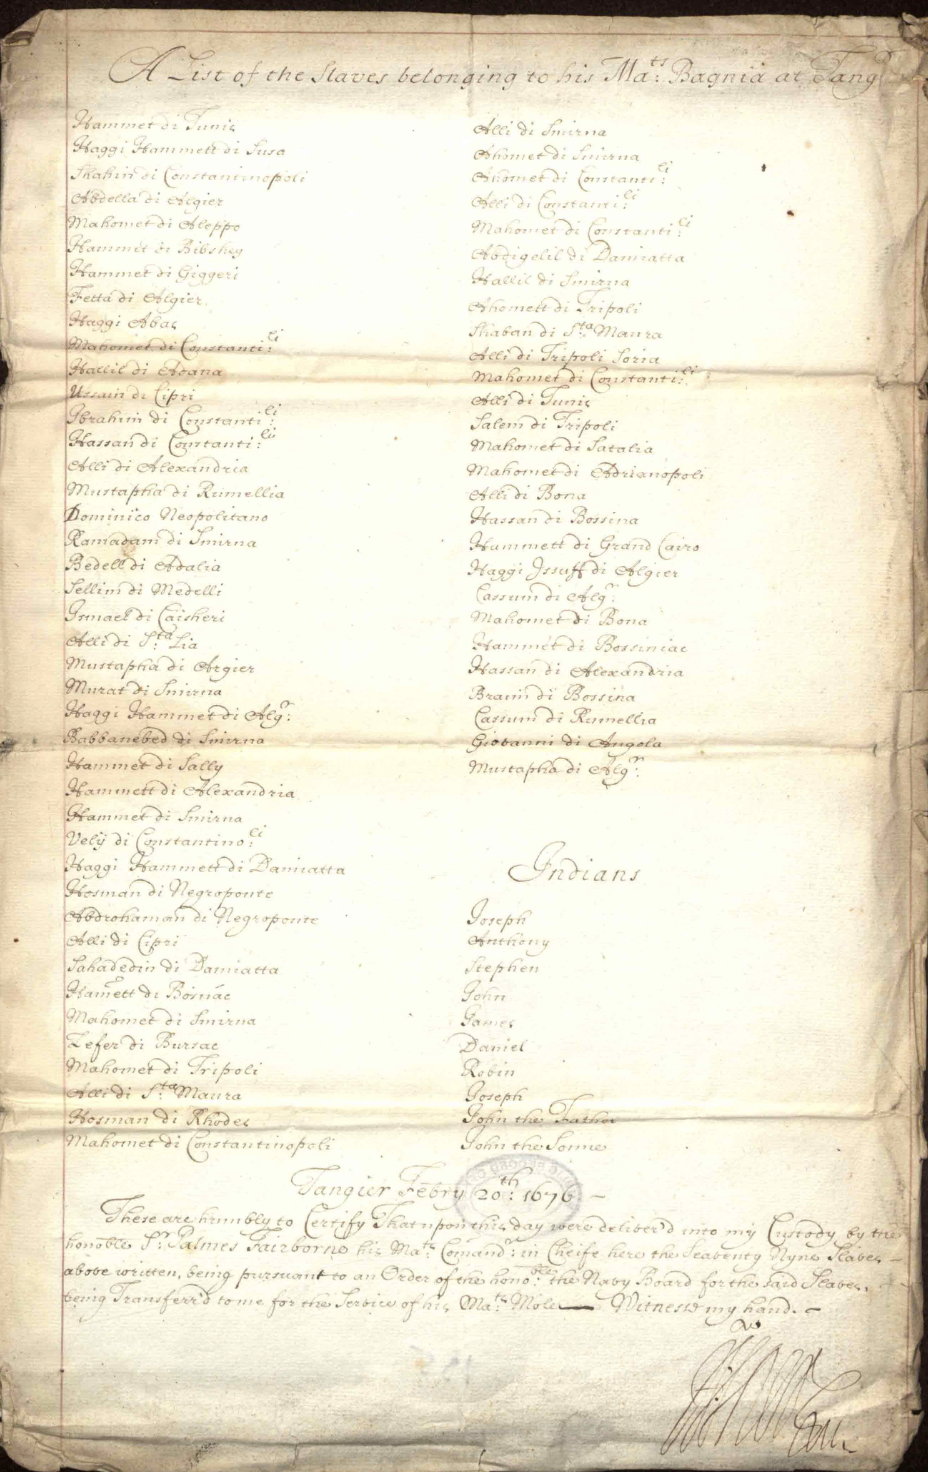 A List of the Slaves belonging to his Ma:ts Bagnia at Tang:r
Hammet di Tunis
Haggi Hammett di Susa
Shahin di Constantinopoli
Abdella di Algier
Mahomet di Aleppo
Hammet di Bibskey
Hammet di Giggeri
Fetta di Algier
Haggi Abas
Mahomet di Constanti:li
Hallil di Adana
Ussain di Cipri
Ibrahim di Constanti:li
Hassan di Constanti:li
Alli di Alexandria
Mustapha di Rumellia
Dominico Neopolitano
Ramadam di Smirna
Bedell di Adalia
Sellim di Medelli
Ismael di Caisheri
Alli di S:ta Lia
Mustapha di Argier
Murat di Smirna
Haggi Hammet di Alg:r
Babbanebed di Smirna
Hammet di Sally
Hammett di Alexandria
Hammet di Smirna
Velÿ di Constantino:li
Haggi Hammett di Damiatta
Hosman di Negroponte
Abdrohaman di Negroponte
Alli di Cipri
Sahadedin di Damiatta
Hamett di Bosnac
Mahomet di Smirna
Zefer di Bursac
Mahomet di Tripoli
Alli di S:ta Maura
Hosman di Rhodes
Mahomet di Constantinopoli
Alli di Smirna
Ahomet di Smirna
Ahomet di Constanti:li
Alli di Constanti:li
Mahomet di Constanti:li
Abdigelil di Damiatta
Hallil di Smirna
Ahomett di Tripoli
Shaban di S:ta Maura
Alli di Tripoli Soria
Mahomet di Constanti:li
Alli di Tunis
Salem di Tripoli
Mahomet di Satalia
Mahomet di Adrianopoli
Alli di Bona
Hassan di Bossina
Hammett di Grand Cairo
Haggi Issuff di Algier
Cassum di Alg:r
Mahomet di Bona
Hammet di Bossiniac
Hassan di Alexandria
Braim di Bossina
Cassum di Rumellia
Giovanni di Angola
Mustapha di Alg:r
Indians
Joseph
Anthony
Stephen
John
James
Daniel
Robin
Joseph
John the Father
John the Sonne
Tangier Febry 20:th 1676 –
These are humbly to Certify That upon this day were deliver'd into my Custody by the
honoble S:r Palmes Fairborne his Ma:ts Comand:r in Cheife here the Seaventy Nyne Slaves –
above written, being pursuant to an Order of the hono:ble the Navy Board for the said Slaves,
being Transferr'd to me for the Service of his Ma:ts Mole — Witnesse my hand. –